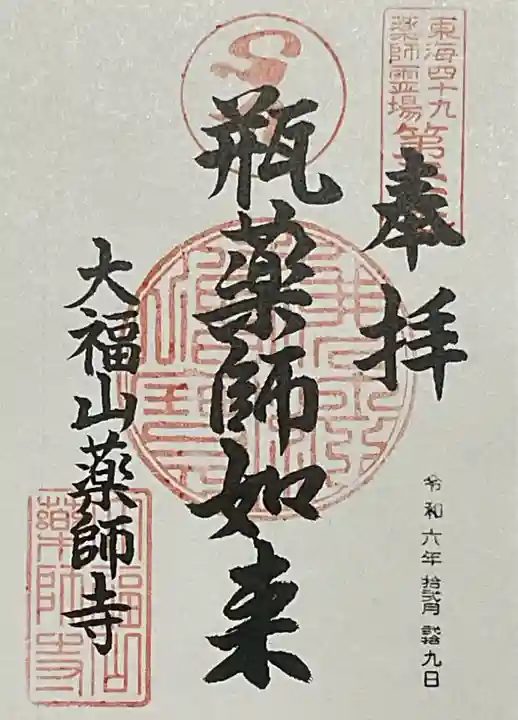 東海四十九
薬師霊場
奉拝
令和六年 拾弐月 弐拾九日
瓶薬師如来
大福山薬師寺